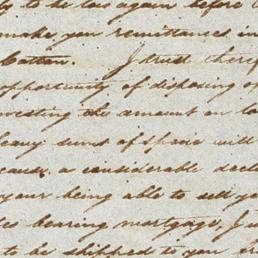 to be las again before
make you remittances in
Cotton. I trust theref
opportunity of disposing of
investing the amount on lo
heavy sums of specie will
cause, a considerable decl
your being able to sell yo
bearing mortgage, I w
to be shipped to you